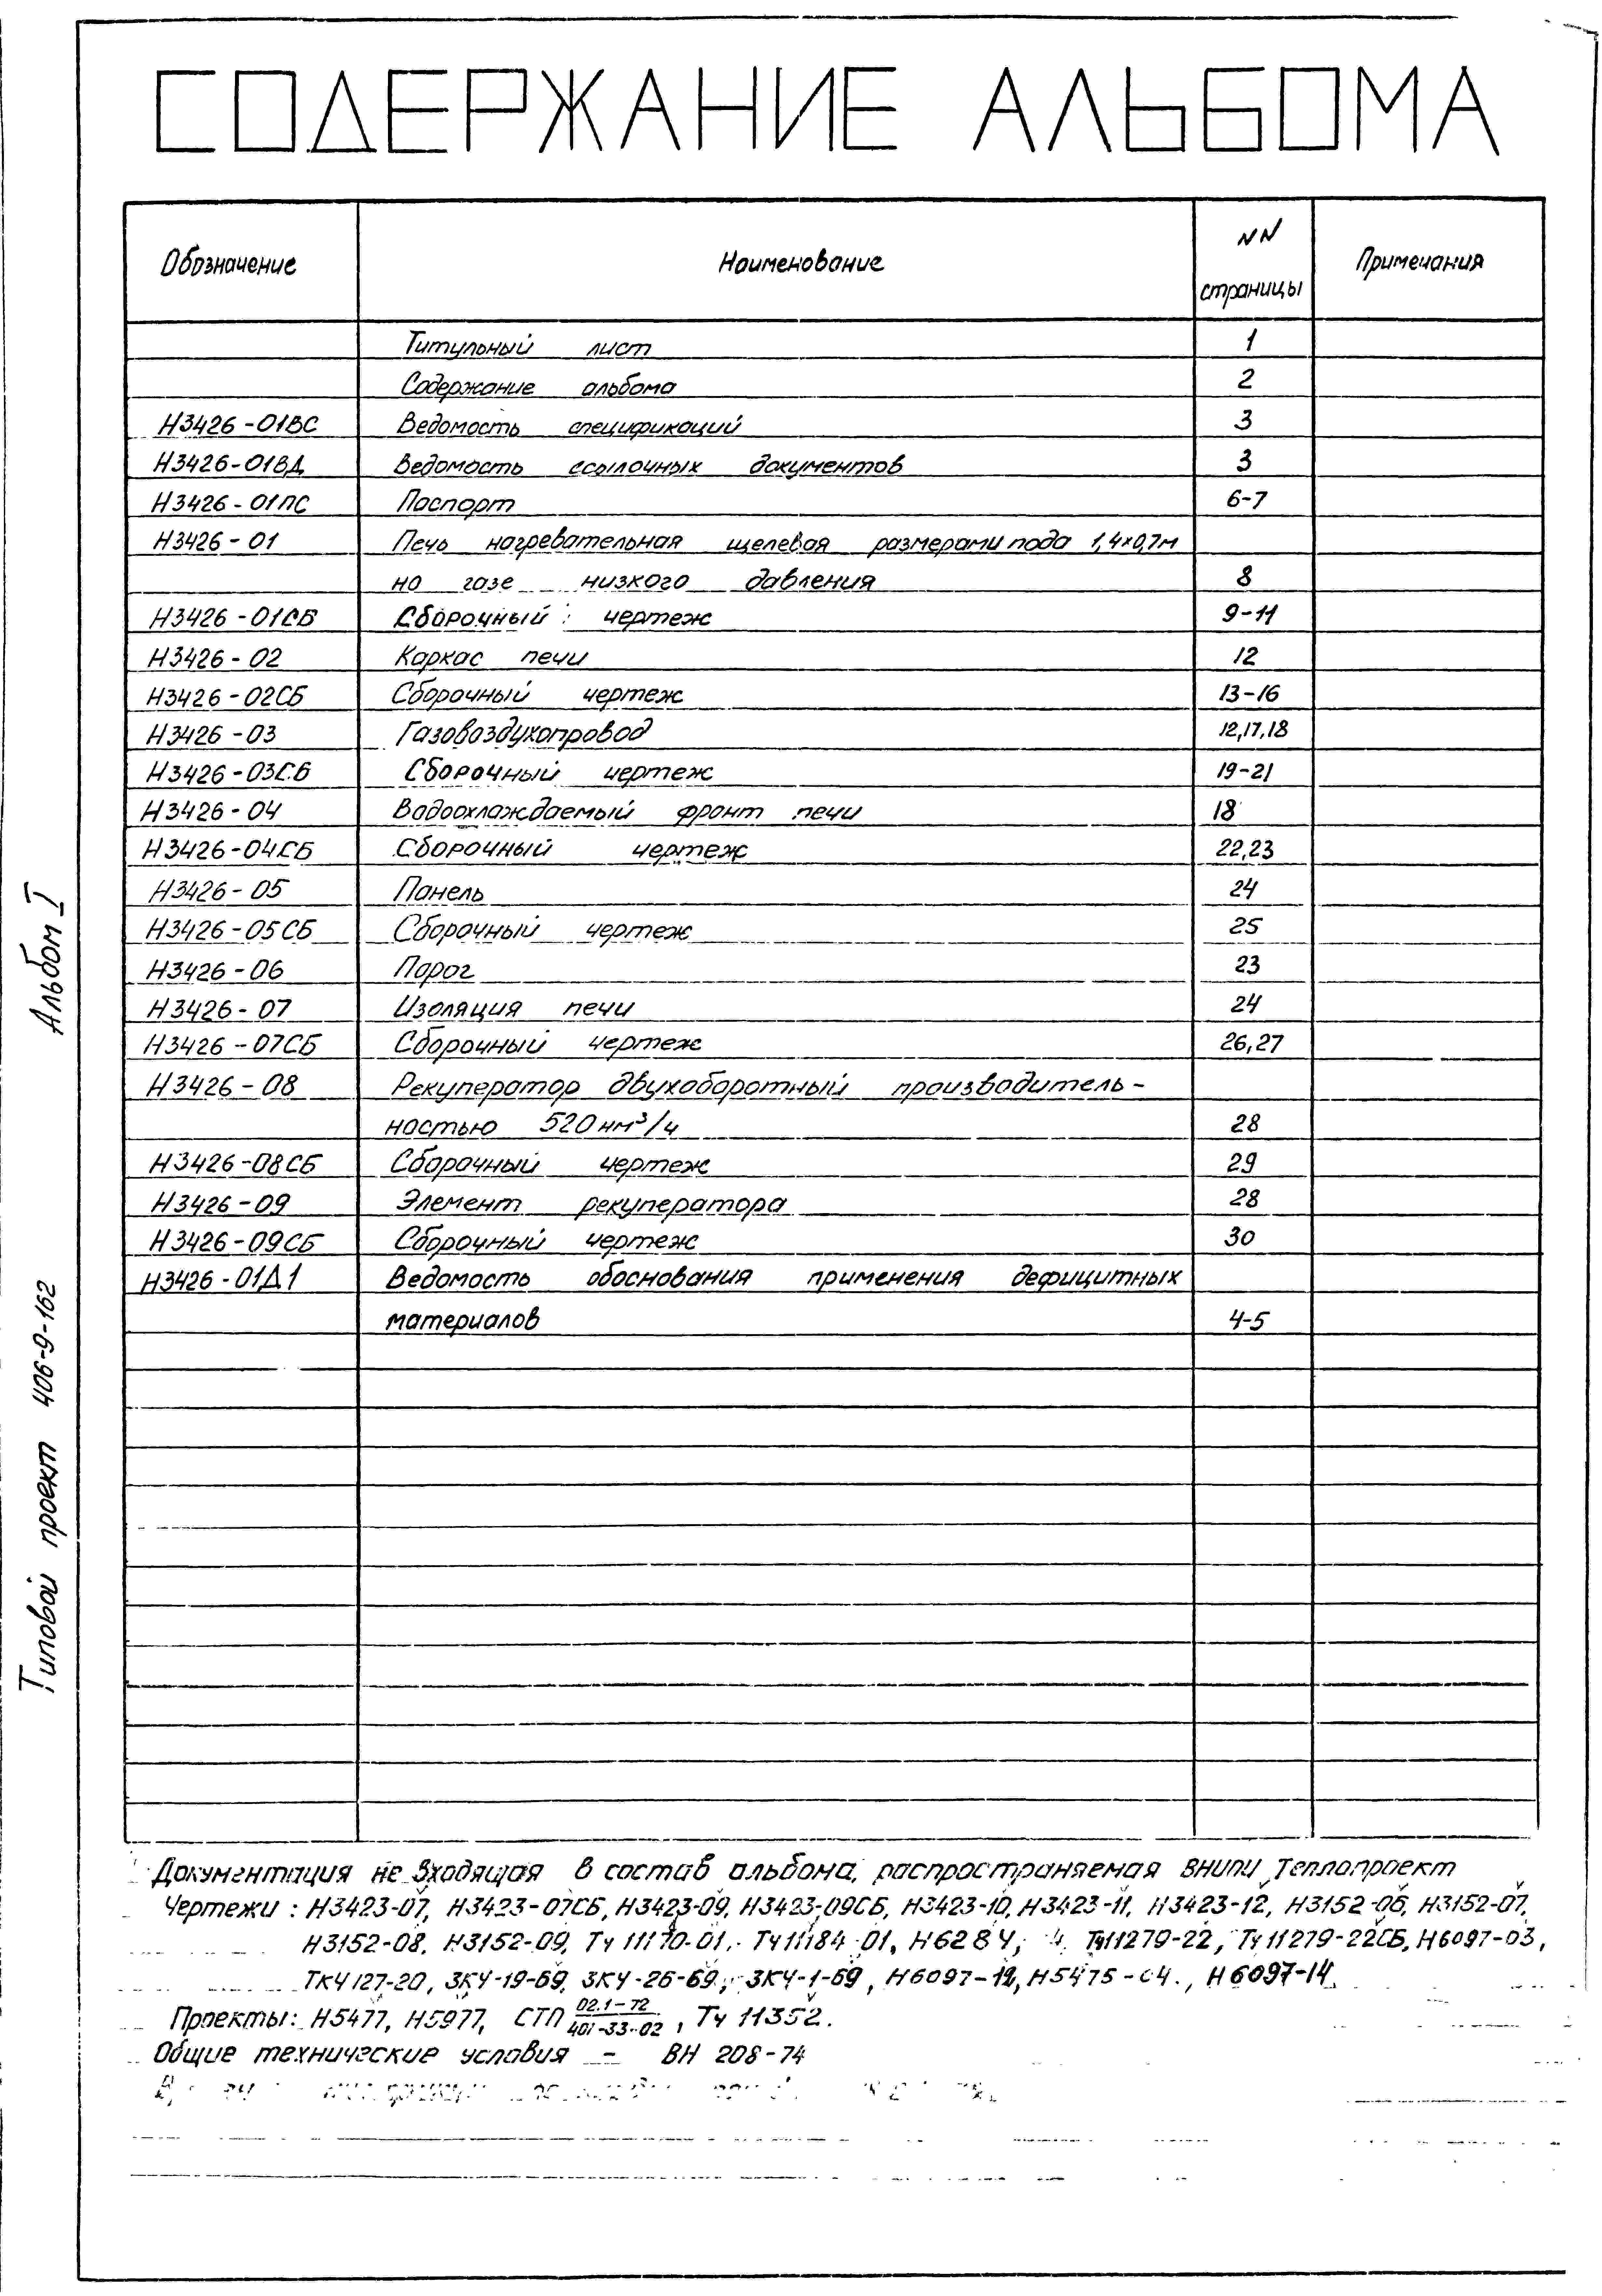 СОДЕРЖАНИЕ АЛЬБОМА
Обозначение Наименование NN страницы Примечания
Титульный лист 1
Содержание альбома 2
Н3426-01ВС Ведомость спецификаций 3
Н3426-01ВД Ведомость ссылочных документов 3
Н3426-01ПС Паспорт 6-7
Н3426-01 Печь нагревательная щелевая размерами пода 1,4х0,7м
на газе низкого давления 8
Н3426-01СБ Сборочный чертеж 9-11
Н3426-02 Каркас печи 12
Н3426-02СБ Сборочный чертеж 13-16
Н3426-03 Газовоздухопровод 12,17,18
Н3426-03СБ Сборочный чертеж 19-21
Н3426-04 Водоохлаждаемый фронт печи 18
Н3426-04СБ Сборочный чертеж 22,23
Н3426-05 Панель 24
Н3426-05СБ Сборочный чертеж 25
Н3426-06 Порог 23
Н3426-07 Изоляция печи 24
Н3426-07СБ Сборочный чертеж 26,27
Н3426-08 Рекуператор двухоборотный производитель-
ностью 520 нм³/ч 28
Н3426-08СБ Сборочный чертеж 29
Н3426-09 Элемент рекуператора 28
Н3426-09СБ Сборочный чертеж 30
Н3426-01Д1 Ведомость обоснования применения дефицитных
материалов 4-5
Документация не входящая в состав альбома, распространяемая ВНИПИ Теплопроект
Чертежи: Н3423-07, Н3423-07СБ, Н3423-09, Н3423-09СБ, Н3423-10, Н3423-11, Н3423-12, Н3152-06, Н3152-07,
Н3152-08, Н3152-09, Тч 11170-01, Тч 11184-01, Тч11279-22, Тч11279-22СБ, Н6097-03,
ТК4127-20, ЗК4-19-69, ЗК4-26-69, ЗК4-1-69, Н6097-12, Н5475-04, Н6097-14.
Проекты: Н5477, Н5977, СТП 02.1-72/401-33-02, Тч 11352.
Общие технические условия – ВН 208-74
Альбом I
Типовой проект 406-9-162